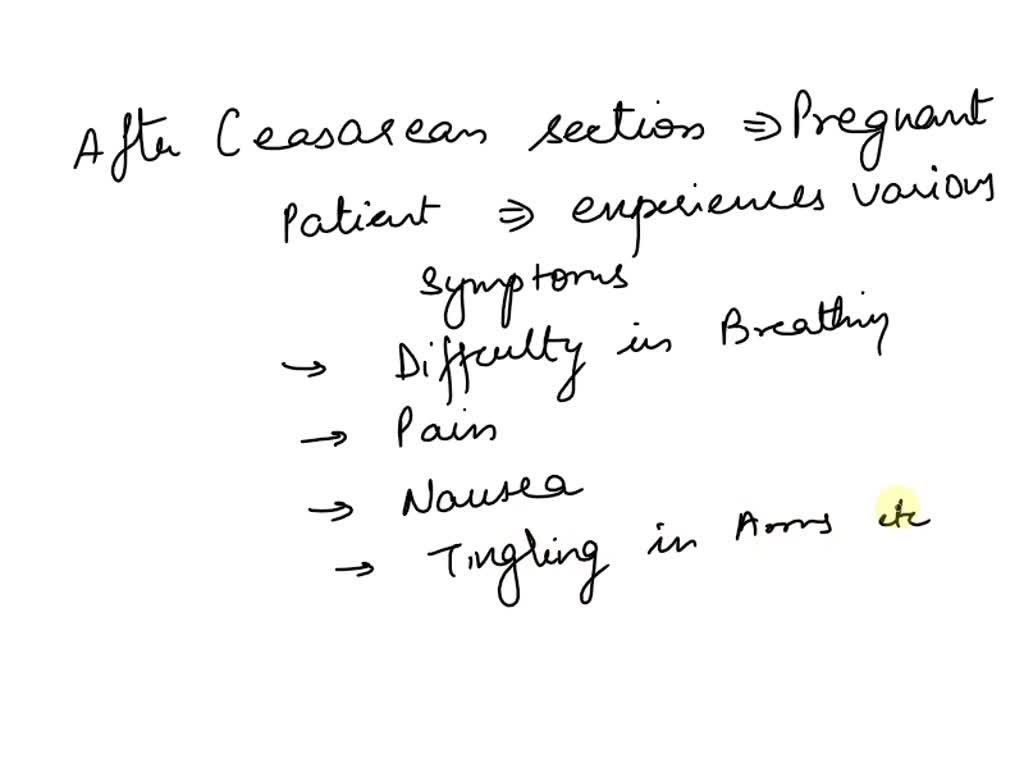 After Ceasarean section ⇒ Pregnant
Patient ⇒ experiences various
symptoms
→ Difficulty in Breathing
→ Pain
→ Nausea
→ Tingling in Arms etc